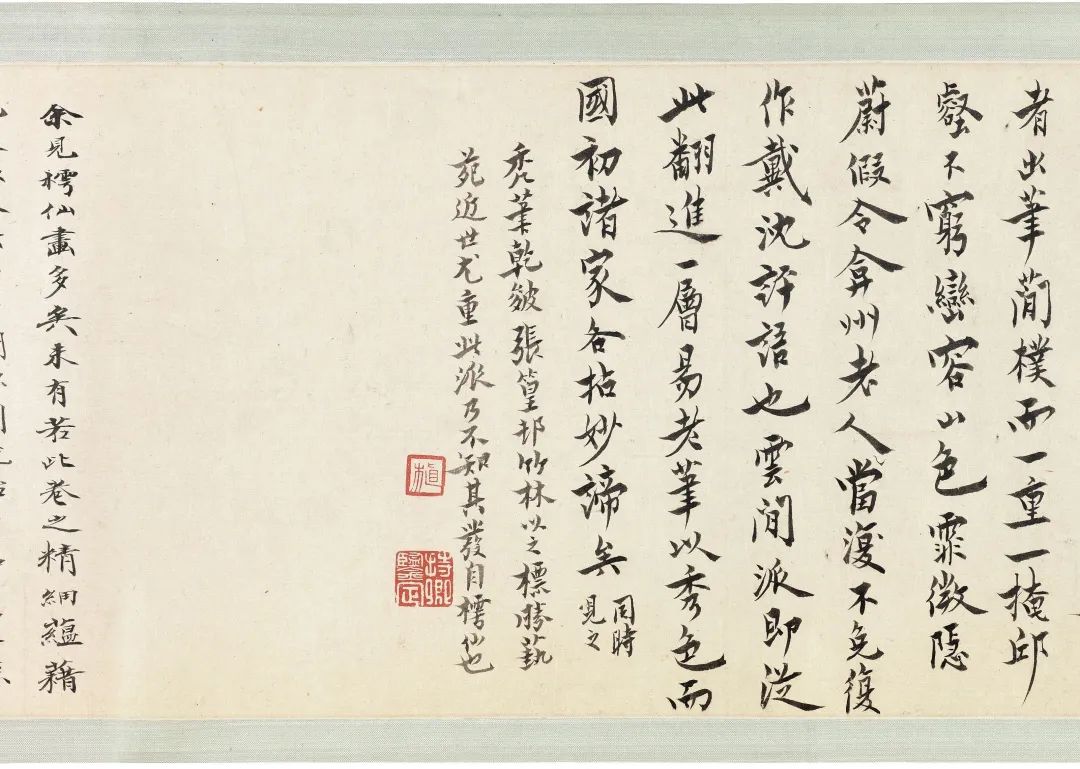 者出筆蕳樸而一重一掩邱
壑不窮巒容山色霏微隱
蔚假令弇州老人當復不免復
作戴沈評語也雲間派即從
此翻進一層易老筆以秀色而
國初諸家各拈妙諦矣
同時
見之
秃筆乾皴張篁邨竹林以之標勝藝
苑近世尤重此派乃不知其發自樗仙也
植
持卿
鑒定
余見樗仙畫多矣未有若此卷之精細蘊藉